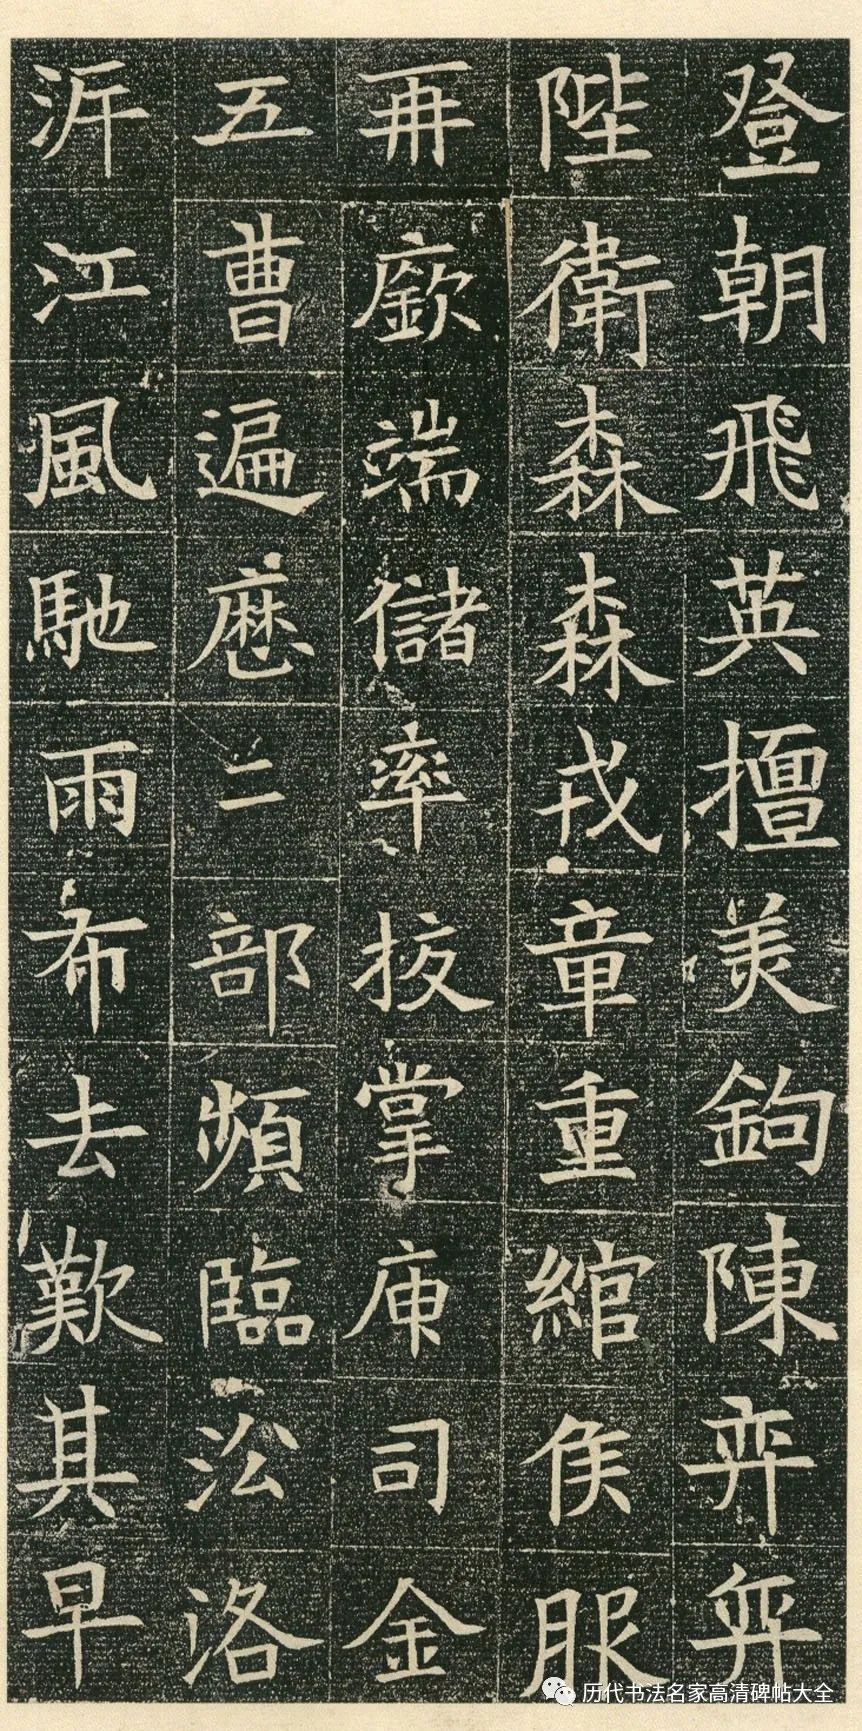 登朝飛英擅美鉤陳弈弈
陛衛森森戎章重綰侯服
再廞端儲率拔掌庾司金
五曹遍歷二部頻臨㳂洛
泝江風馳雨布去歎其早
历代书法名家高清碑帖大全